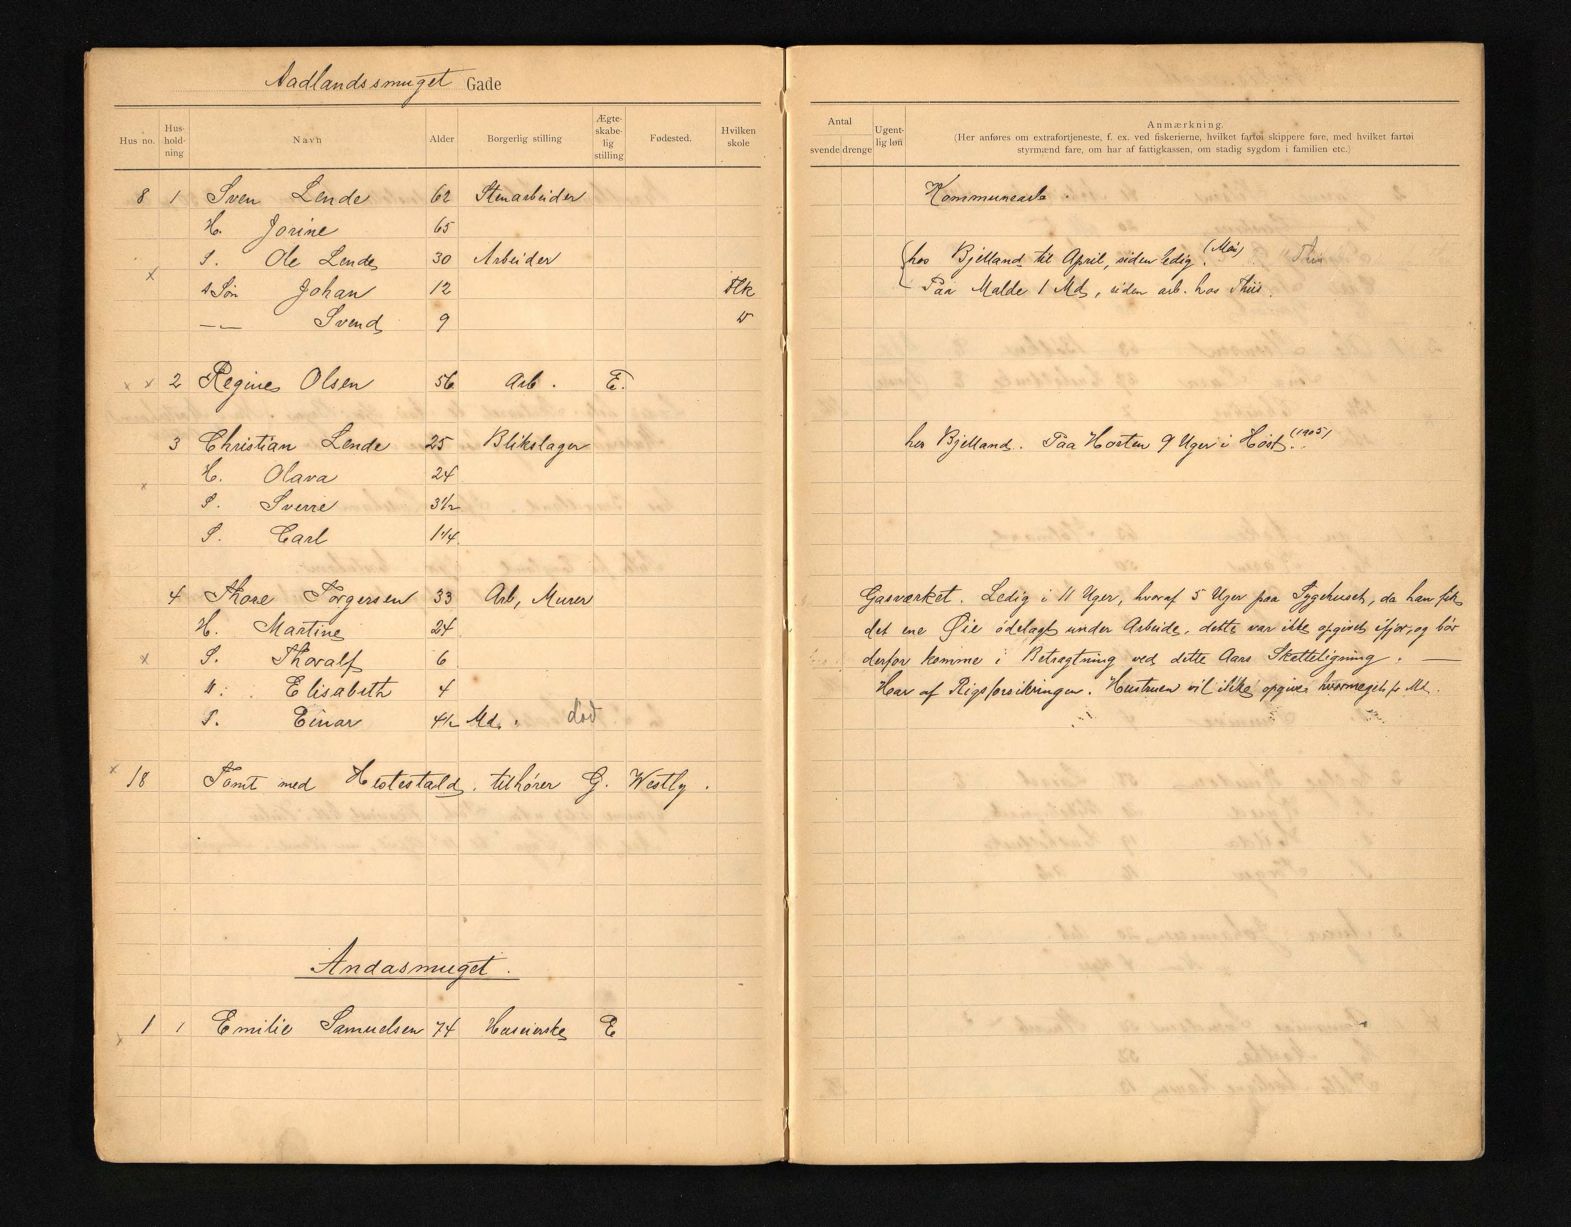 Aadlandssmuget Gade
Hus no. Hus-hold-ning Navn Alder Borgerlig stilling Ægte-skabe-lig stilling Fødested. Hvilken skole
8 1 Sven Lende 62 Stenarbeider
H. Jorine 65
S. Ole Lende 30 Arbeider
x
s Søn Johan 12 Flk
—"— Svend 9 "
x x 2 Regine Olsen 56 Arb. E.
3 Christian Lende 25 Blikslager
H. Olava 24
x
S. Sverre 3½
S. Carl 1¼
4 Thore Torgersen 33 Arb, Murer
H. Martine 24
x S. Thoralf 6
". Elisabeth 4
S. Einar 4½ Md. död
x
18 Tomt med Hestestald, tilhører G. Westly.
Andasmuget.
1 1 Emilie Samuelsen 74 Huseierske E
x
Antal
svende drenge
Ugent-lig løn
Anmærkning.
(Her anføres om extrafortjeneste, f. ex. ved fiskerierne, hvilket fartøi skippere føre, med hvilket fartøi
styrmænd fare, om har af fattigkassen, om stadig sygdom i familien etc.)
Kommunearb.
hos Bjelland til April, siden ledig (Mai) Thiis
Paa Malde 1 Md, siden arb. hos Thiis.
hos Bjelland. Paa Horten 9 Uger i Høst. (1905)
Gasværket. Ledig i 11 Uger, hvoraf 5 Uger paa Sygehuset, da han fik
det ene Øie ödelagt under Arbeide, dette var ikke opgivet ifjor, og bör
derfor komme i Betragtning ved dette Aars Skatteligning. —
Har af Rigsforsikringen. Hustruen vil ikke opgive hvormeget pr Md.